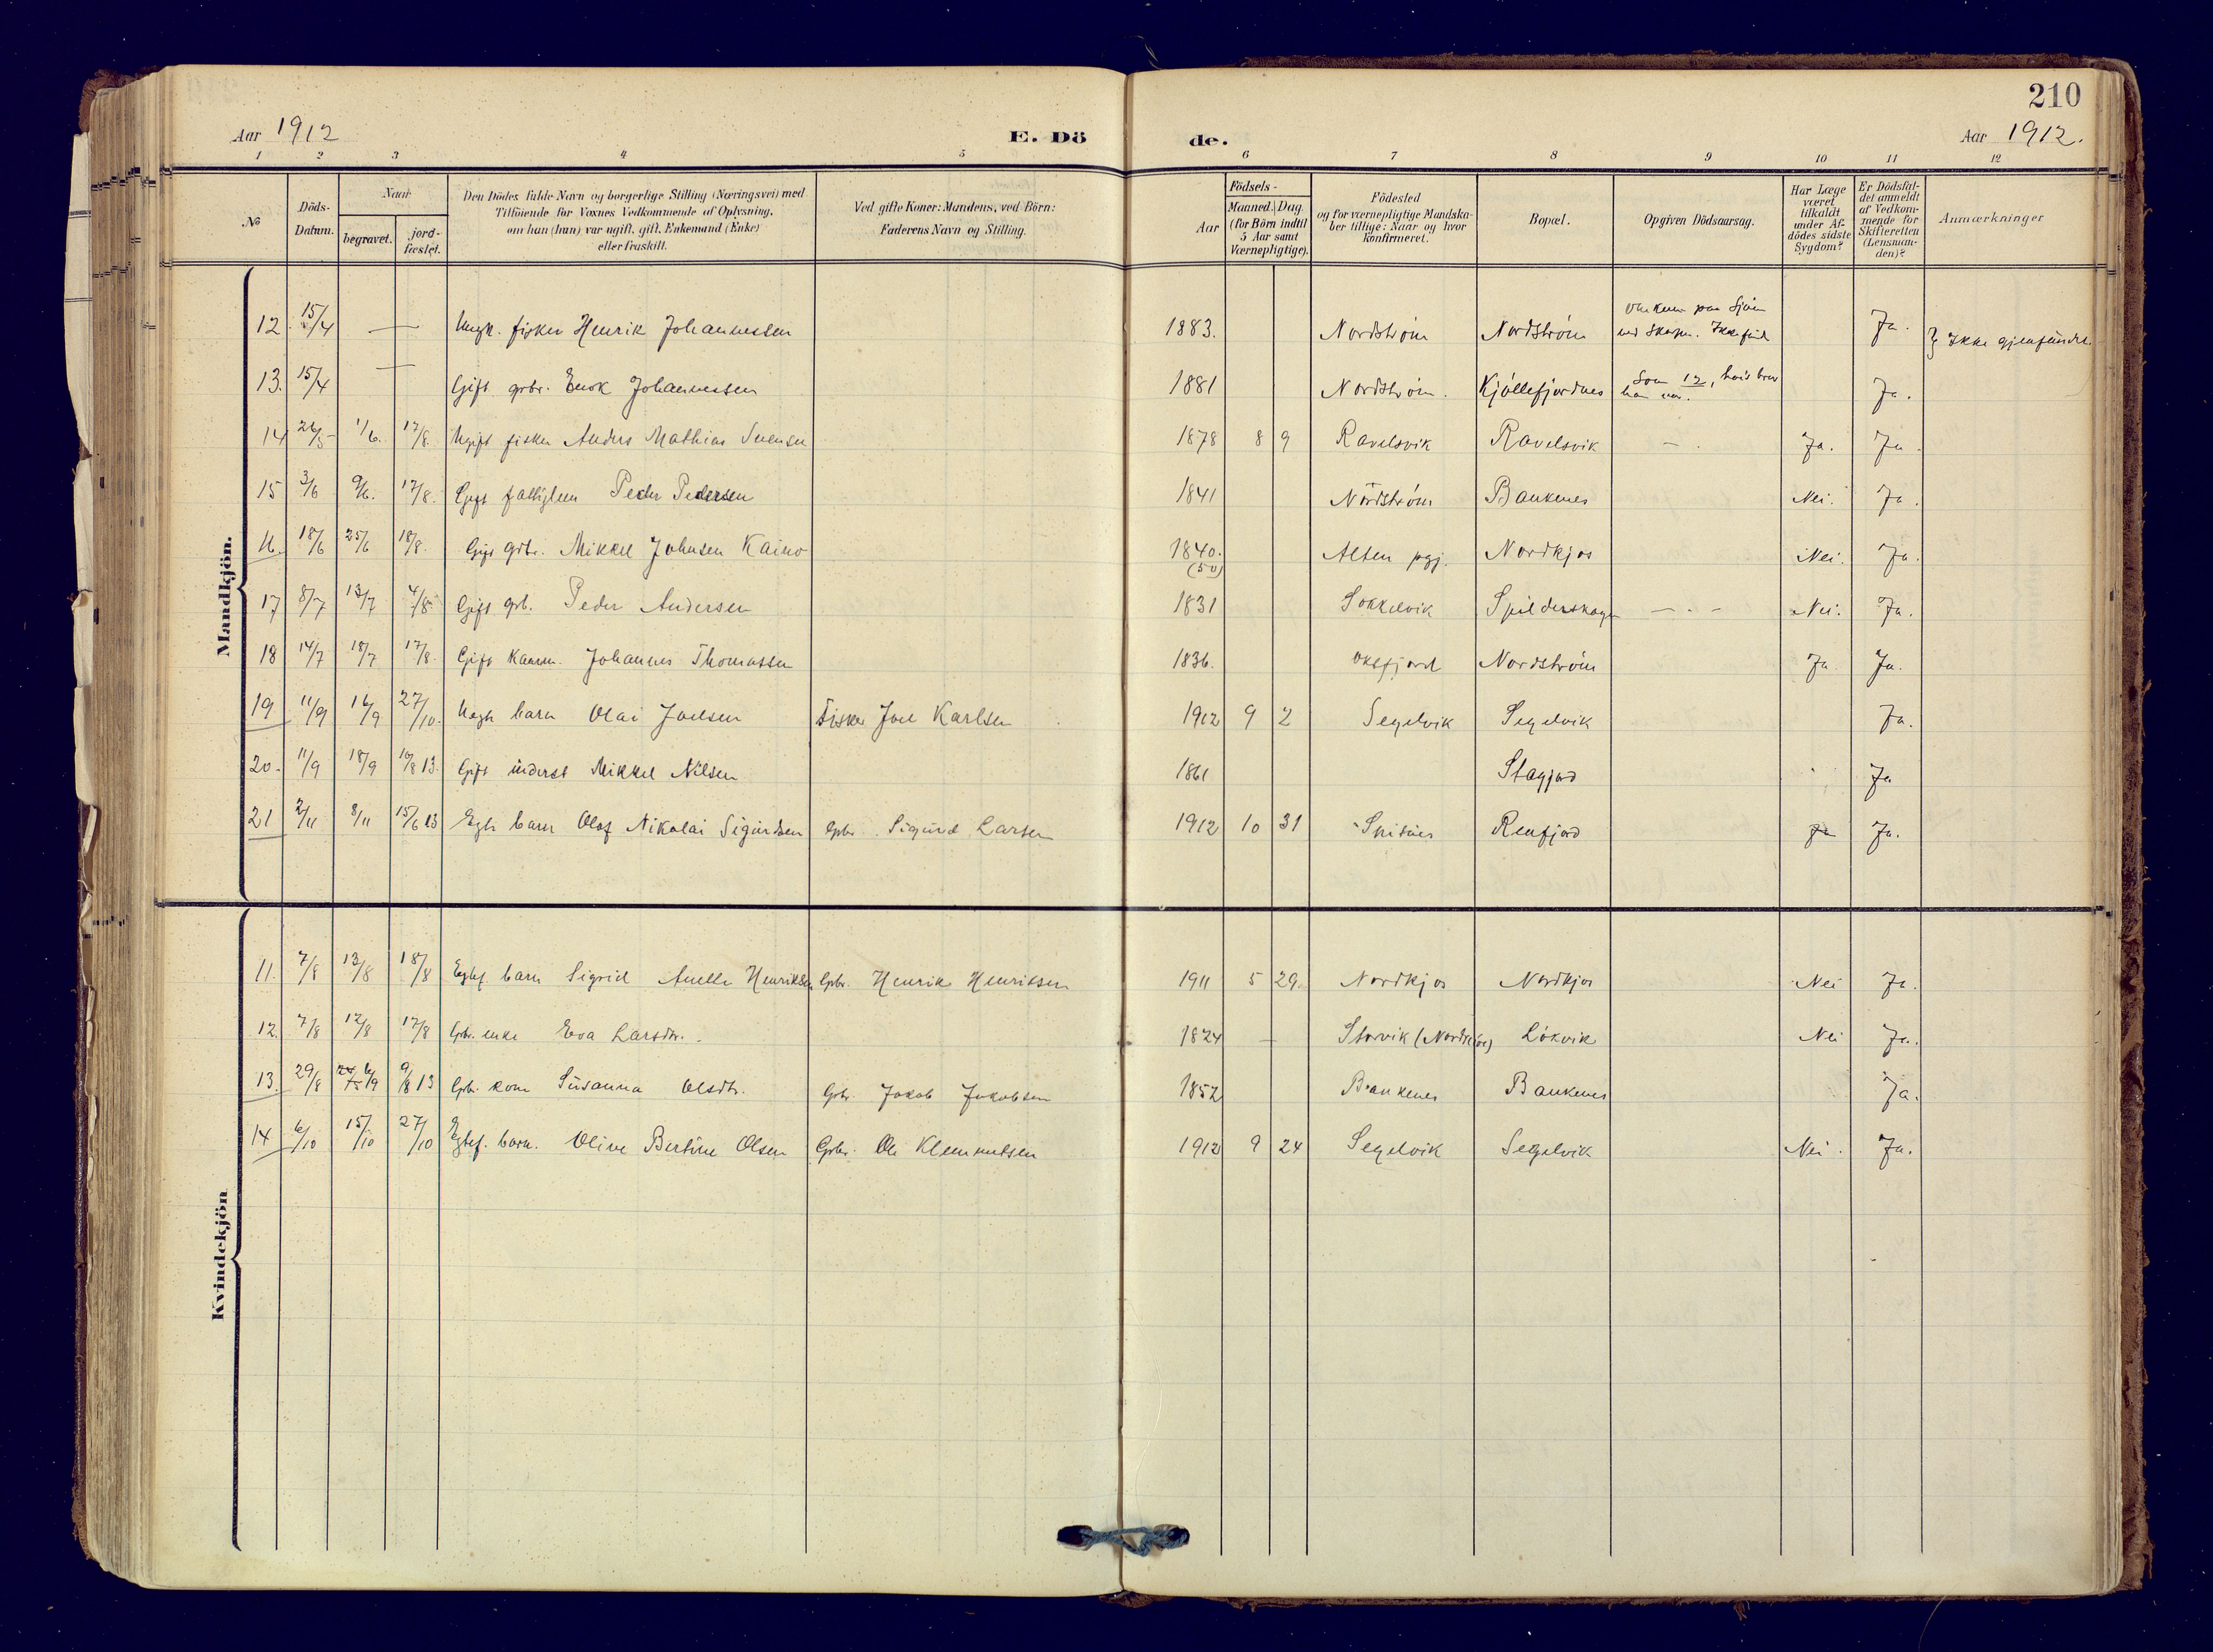 210
Aar 1912
E. Dö
de.
Aar 1912.
1 2 3 4 5 6 7 8 9 10 11 12
No
Döds-
Datum.
Naar
begravet.
jord-
fæstet.
Den Dödes fulde Navn og borgerlige Stilling (Næringsvei) med
Tilföiende for Voxnes Vedkommende af Oplysning,
om han (hun) var ugift, gift, Enkemand (Enke)
eller fraskilt.
Ved gifte Koner: Mandens, ved Börn:
Faderens Navn og Stilling.
Födsels-
Aar
Maaned. Dag.
(for Börn indtil
5 Aar samt
Værnepligtige).
Födested
og for værnepligtige Mandska-
ber tillige: Naar og hvor
konfirmeret.
Bopæl.
Opgiven Dödsaarsag.
Har Læge
været
tilkaldt
under Af-
dödes sidste
Sygdom?
Er Dödsfal-
det anmeldt
af Vedkom-
mende for
Skifteretten
(Lensman-
den)?
Anmærkninger
Mandkjön.
12 15/4 — — Ungk. fisker Henrik Johannessen 1883. Nordström Nordström Omkom paa Sjöen Ja. } Ikke gjenfundet.
13. 15/4 — Gift grbr. Enok Johannessen 1881 Nordström. Kjöllefjordnes Som 12, hvis bror han var. Ja.
14 26/5 1/6. 17/8. Ugift fisker Anders Mathias Svensen 1878 8 9 Ravelsvik Ravelsvik — . Ja. Ja.
15 3/6 9/6. 17/8. Gift fattiglem Peder Pedersen 1841 Nordström Baukenes Nei. Ja.
16. 18/6 25/6 18/8. Gift grbr. Mikkel Johnsen Kaino 1840. (50) Alten pgj. Nordkjos Nei. Ja.
17 8/7 13/7 4/8 Gift grb. Peder Andersen 1831 Sokkelvik Spilderskogen — . — Nei. Ja.
18 14/7 18/7 17/8. Gift Kaarm. Johannes Thomassen 1836. Oksfjord Nordström Ja. Ja.
19 11/9 16/9 27/10. Uegte barn Olai Joelsen Fisker Joel Karlsen 1912 9 2 Segelvik Segelvik Ja.
20. 11/9 18/9 10/8 13. Gift inderst Mikkel Nilsen 1861 Stagjord Ja
21 2/11 8/11 15/6 13 Egte barn Olaf Nikolai Sigurdsen Gbr. Sigurd Larsen 1912 10 31 Spisnes Reafjord Ja Ja.
Kvindekjön
11. 7/8 13/8 18/8 Egtef. barn Sigrid Anette Henriksen Gbr. Henrik Henriksen 1911 5 29. Nordkjos Nordkjos Nei Ja.
12. 7/8 12/8 17/8 Gbr. enke Eva Larsdtr. 1824 — Storvik (Nordreisa) Lökvik Nei Ja.
13. 29/8 6/9 9/8 13 Grb. kone Susanna Olsdtr. Gbr. Jakob Jakobsen 1852 Baukenes Baukenes Ja.
14 6/10 15/10 27/10 Egtef. barn. Olive Bertine Olsen Gbr. Ole Klemmetsen 1912 9 24 Segelvik Segelvik Nei. Ja.